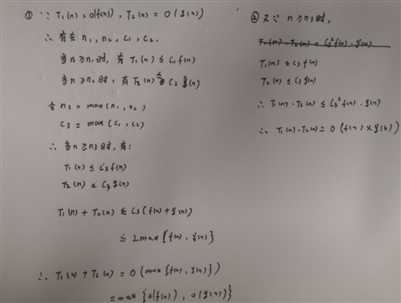 ① ∵ T₁(n) = O(f(n)), T₂(n) = O(g(n))
∴ 存在 n₁, n₂, c₁, c₂.
当 n≥n₁ 时, 有 T₁(n) ≤ c₁f(n)
当 n≥n₂ 时, 有 T₂(n) ≤ c₂g(n)
令 n₃ = max(n₁, n₂)
c₃ = max(c₁, c₂)
∴ 当 n≥n₃ 时, 有:
T₁(n) ≤ c₃f(n)
T₂(n) ≤ c₃g(n)
T₁(n) + T₂(n) ≤ c₃(f(n)+g(n))
≤ 2max{f(n), g(n)}
∴ T₁(n)+T₂(n) = O(max{f(n), g(n)})
= max{O(f(n)), O(g(n))}
② 又∵ n≥n₃时,
T₁(n)·T₂(n) = c₃²f(n)·g(n)
T₁(n) ≤ c₃f(n)
T₂(n) ≤ c₃g(n)
∴ T₁(n)·T₂(n) ≤ c₃²f(n)·g(n)
∴ T₁(n)·T₂(n) = O(f(n)×g(n))